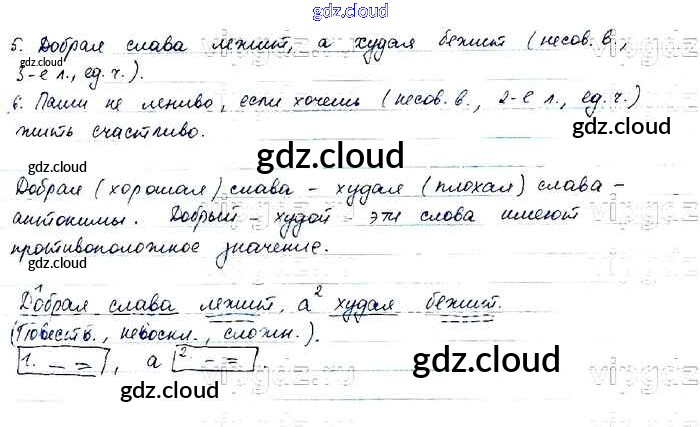 gdz.cloud
5. Добрая слава лежит, а худая бежит (несов. в.,
gdz.cloud
3-е л., ед. ч.).
6. Паши не лениво, если хочешь (несов. в., 2-е л., ед. ч.)
жить счастливо.
gdz.cloud
gdz.cloud
gdz.cloud
Добрая (хорошая) слава – худая (плохая) слава –
антонимы. Добрый – худой – эти слова имеют
противоположное значение.
gdz.cloud
gdz.cloud
gdz.cloud
Добрая слава лежит, а худая бежит.
1 2
(Повеств., невоскл., сложн.).
1. – = , а 2. – =
gdz.cloud
gdz.cloud
vipgdz.ru